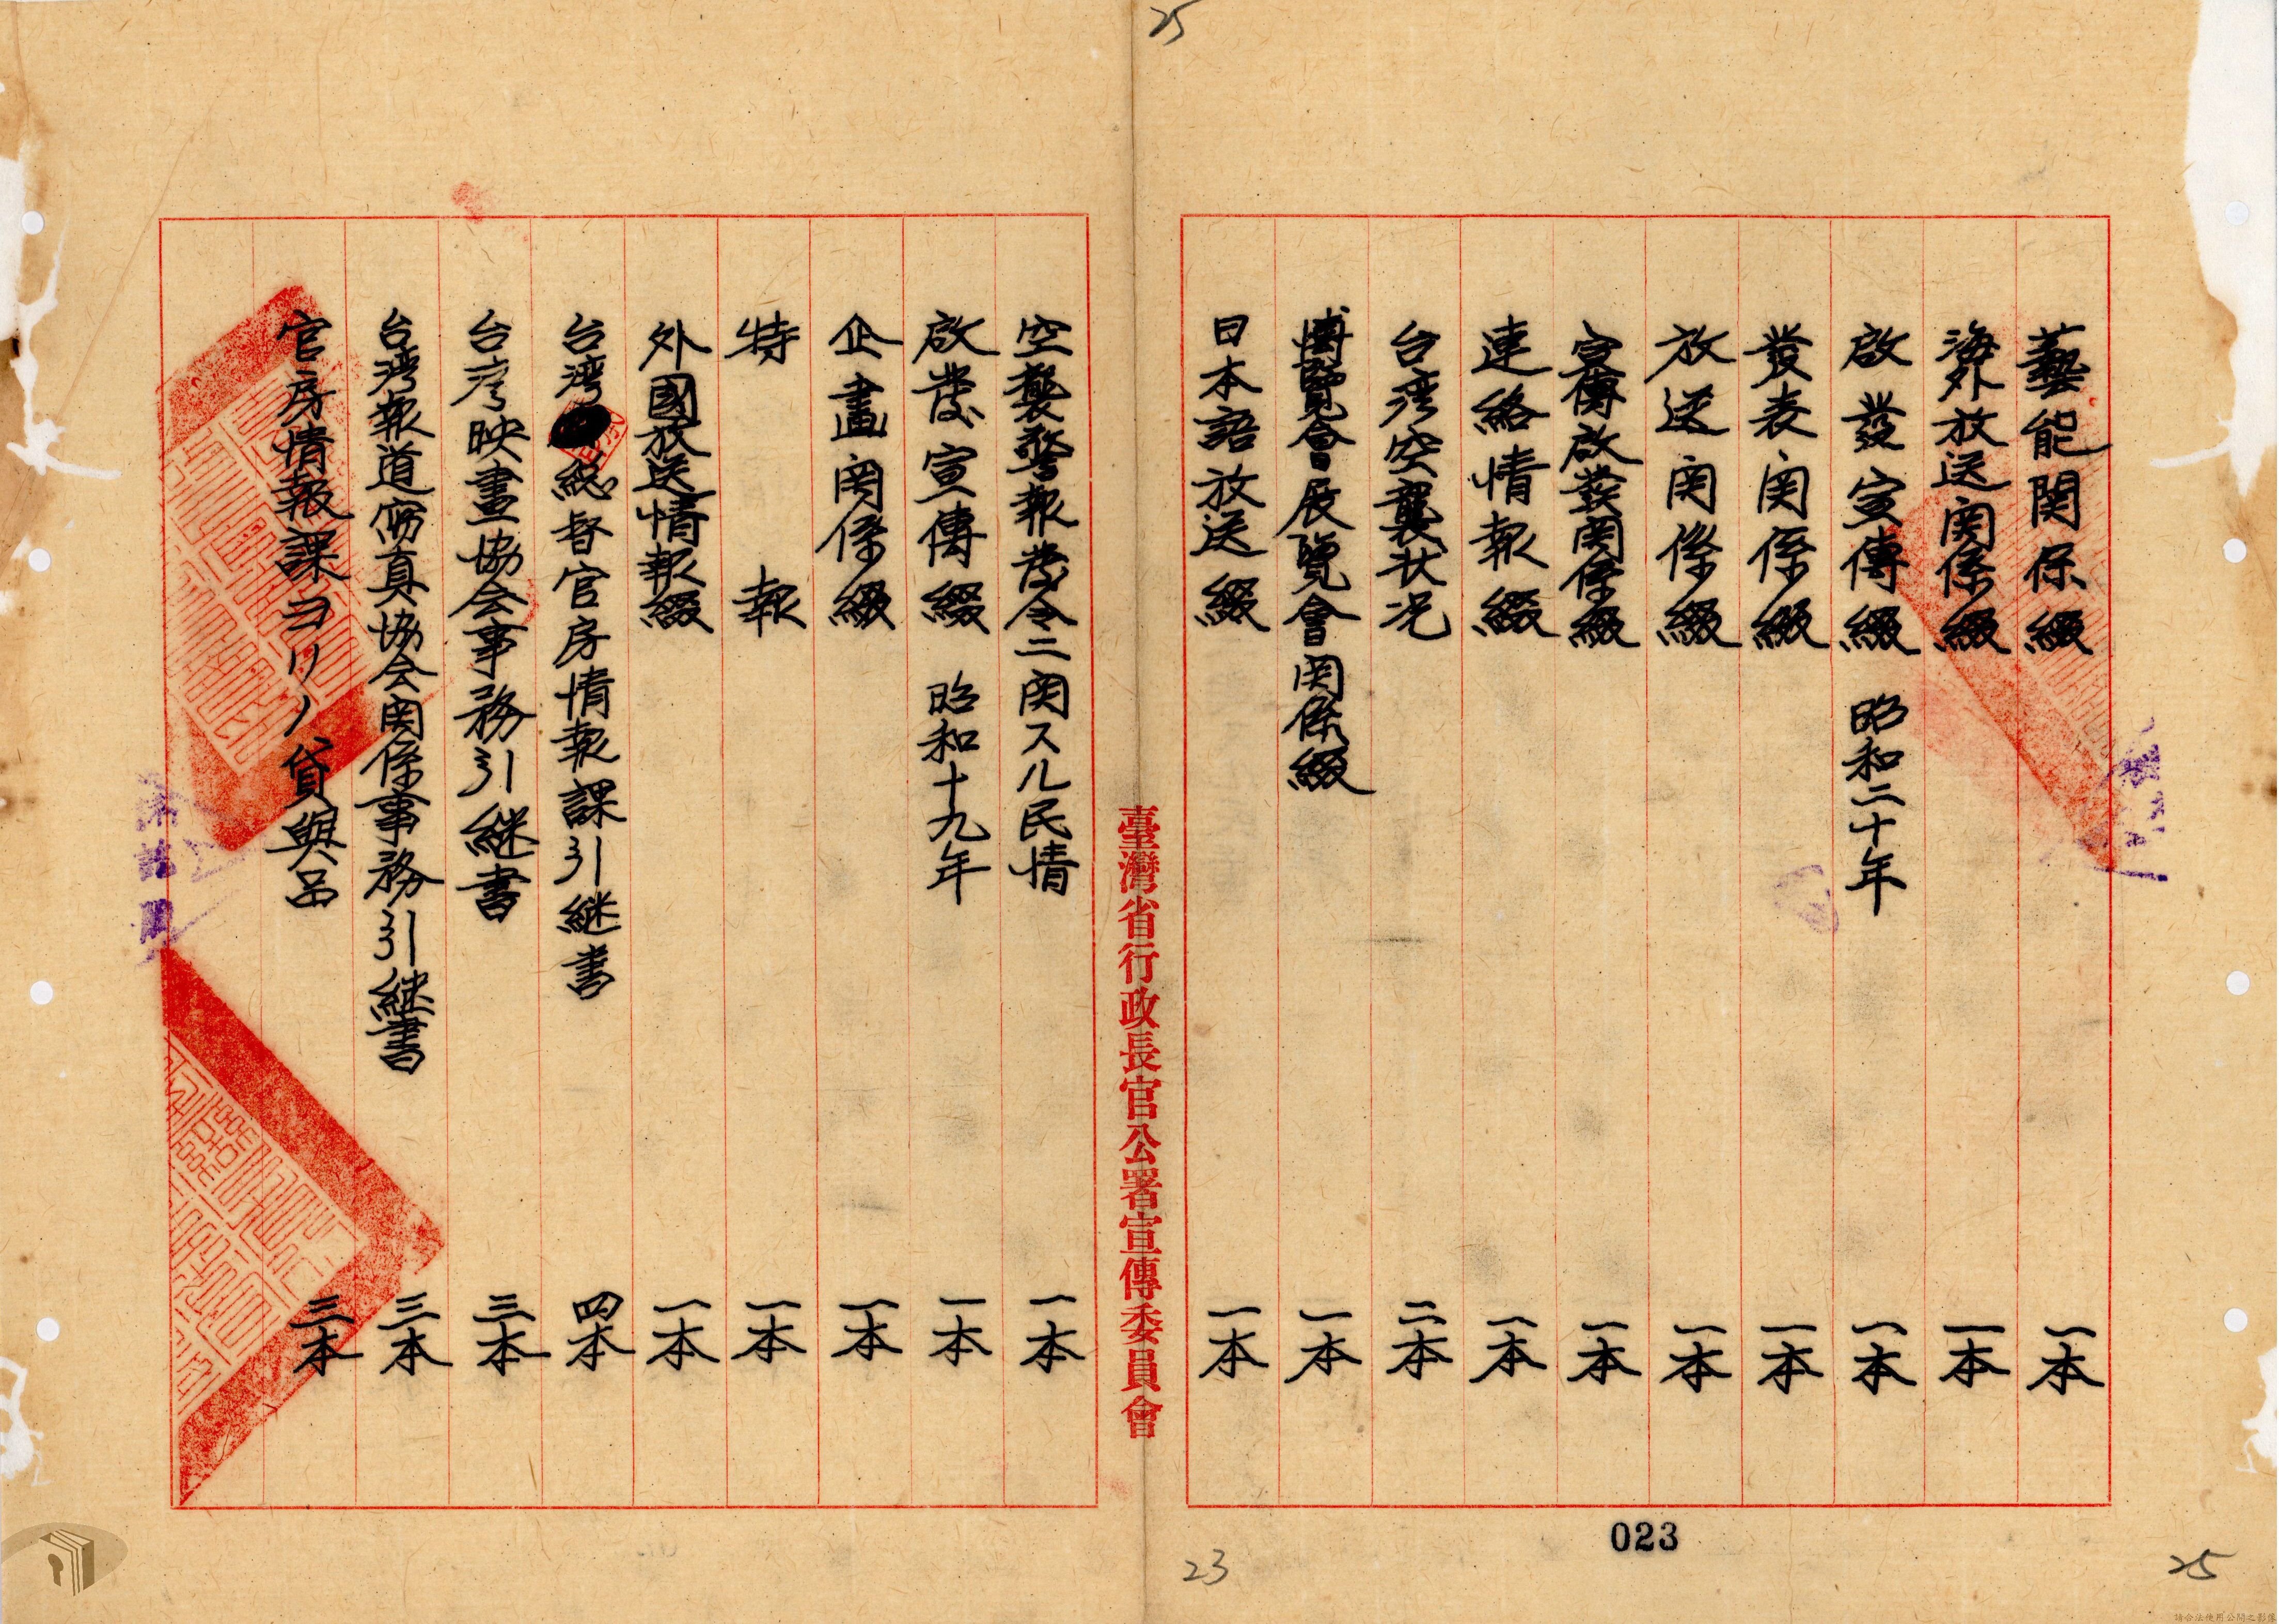 25
藝能関係綴 一本
海外放送関係綴 一本
啟發宣傳綴 昭和二十年 一本
發表関係綴 一本
放送関係綴 一本
宣傳啟發関係綴 一本
連絡情報綴 一本
台湾空襲状况 二本
博覽會展覽會関係綴 一本
日本語放送綴 一本
臺灣省行政長官公署宣傳委員會
空襲警報發令ニ関スル民情 一本
啟發宣傳綴 昭和十九年 一本
企畫関係綴 一本
特報 一本
外國放送情報綴 一本
台湾総督官房情報課引継書 四本
台湾映畫協会事務引継書 三本
台湾報道写真協会関係事務引継書 三本
官房情報課ヨリノ貸與品 三本
023
23
25
請合法使用公開之影像